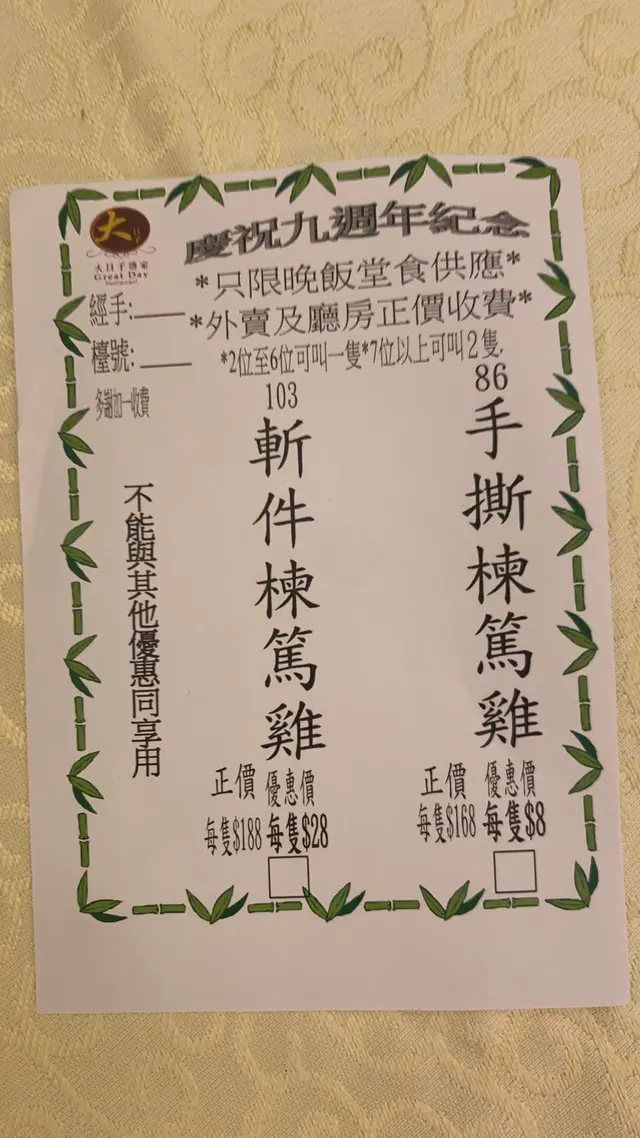 大
大日子酒家
Great Day
Restaurant
慶祝九週年紀念
*只限晚飯堂食供應*
*外賣及廳房正價收費*
*2位至6位可叫一隻*7位以上可叫2隻,
經手:____
檯號:____
多謝加一收費
86
手撕楝篤雞
正價 優惠價
每隻$168 每隻$8
103
斬件楝篤雞
正價 優惠價
每隻$188 每隻$28
不能與其他優惠同享用